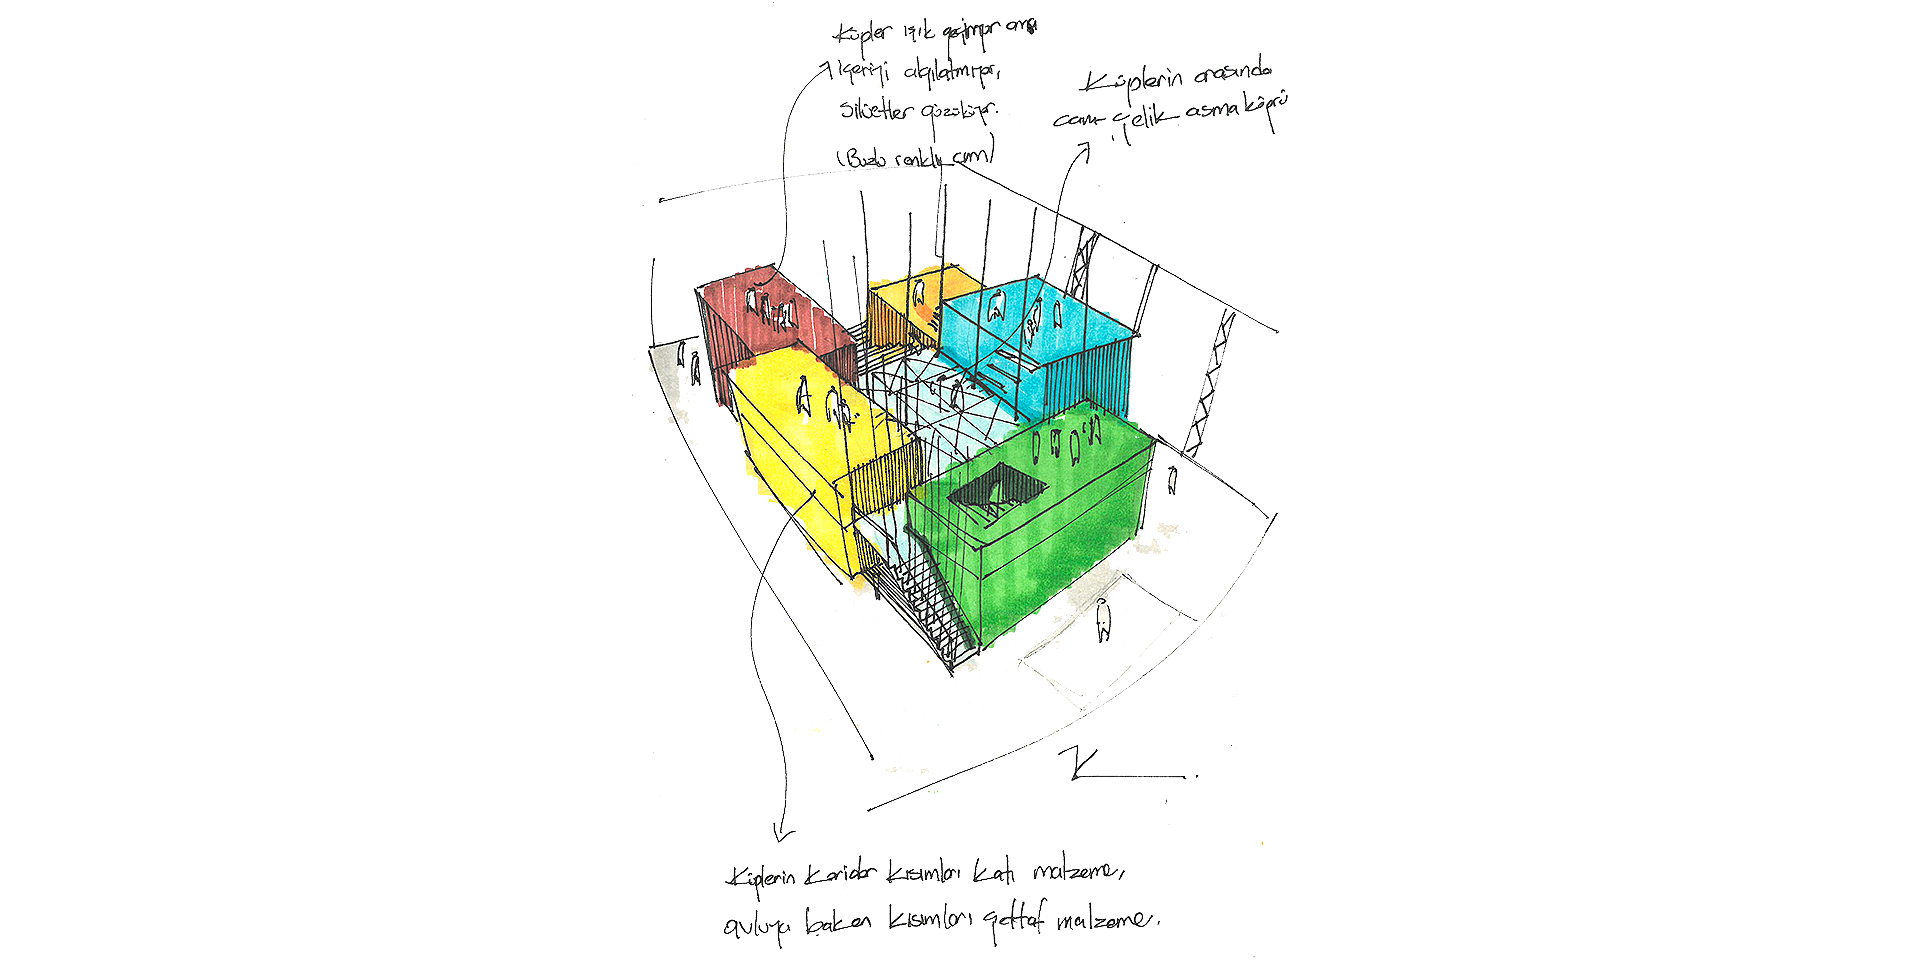 Küpler ışık geçiriyor ama
içeriyi algılatmıyor,
silüetler gözüküyor.
(Buzlu renkli cam)
Küplerin arasında
cam çelik asma köprü
Küplerin koridor kısımları katı malzeme,
avluya bakan kısımları şeffaf malzeme.